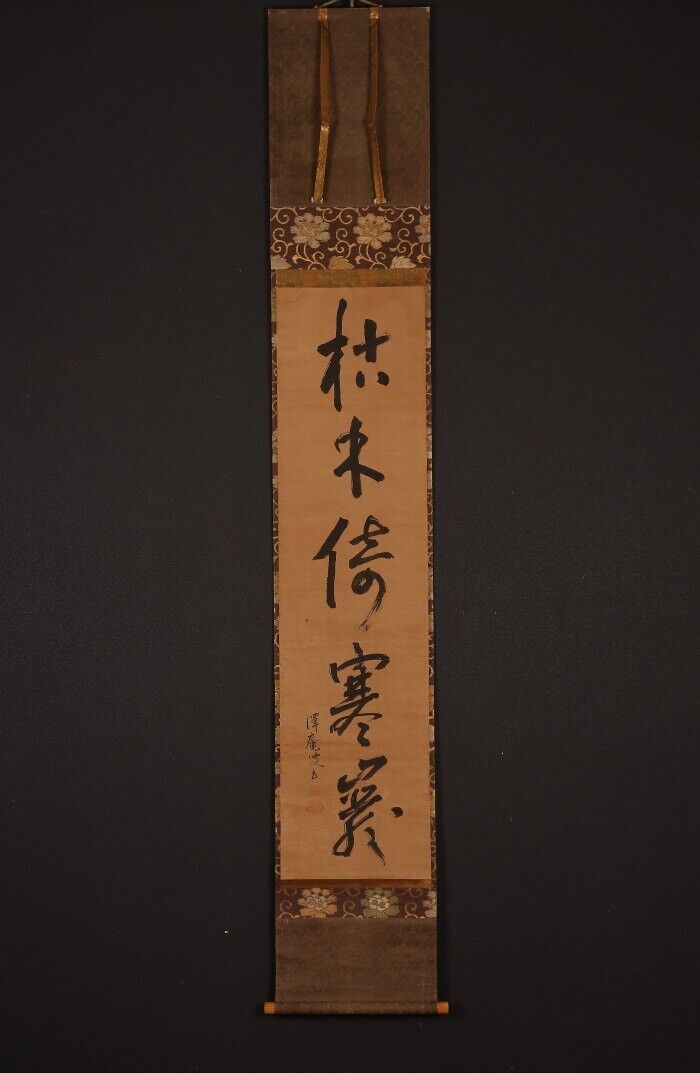 枯木倚寒巖
澤庵叟書